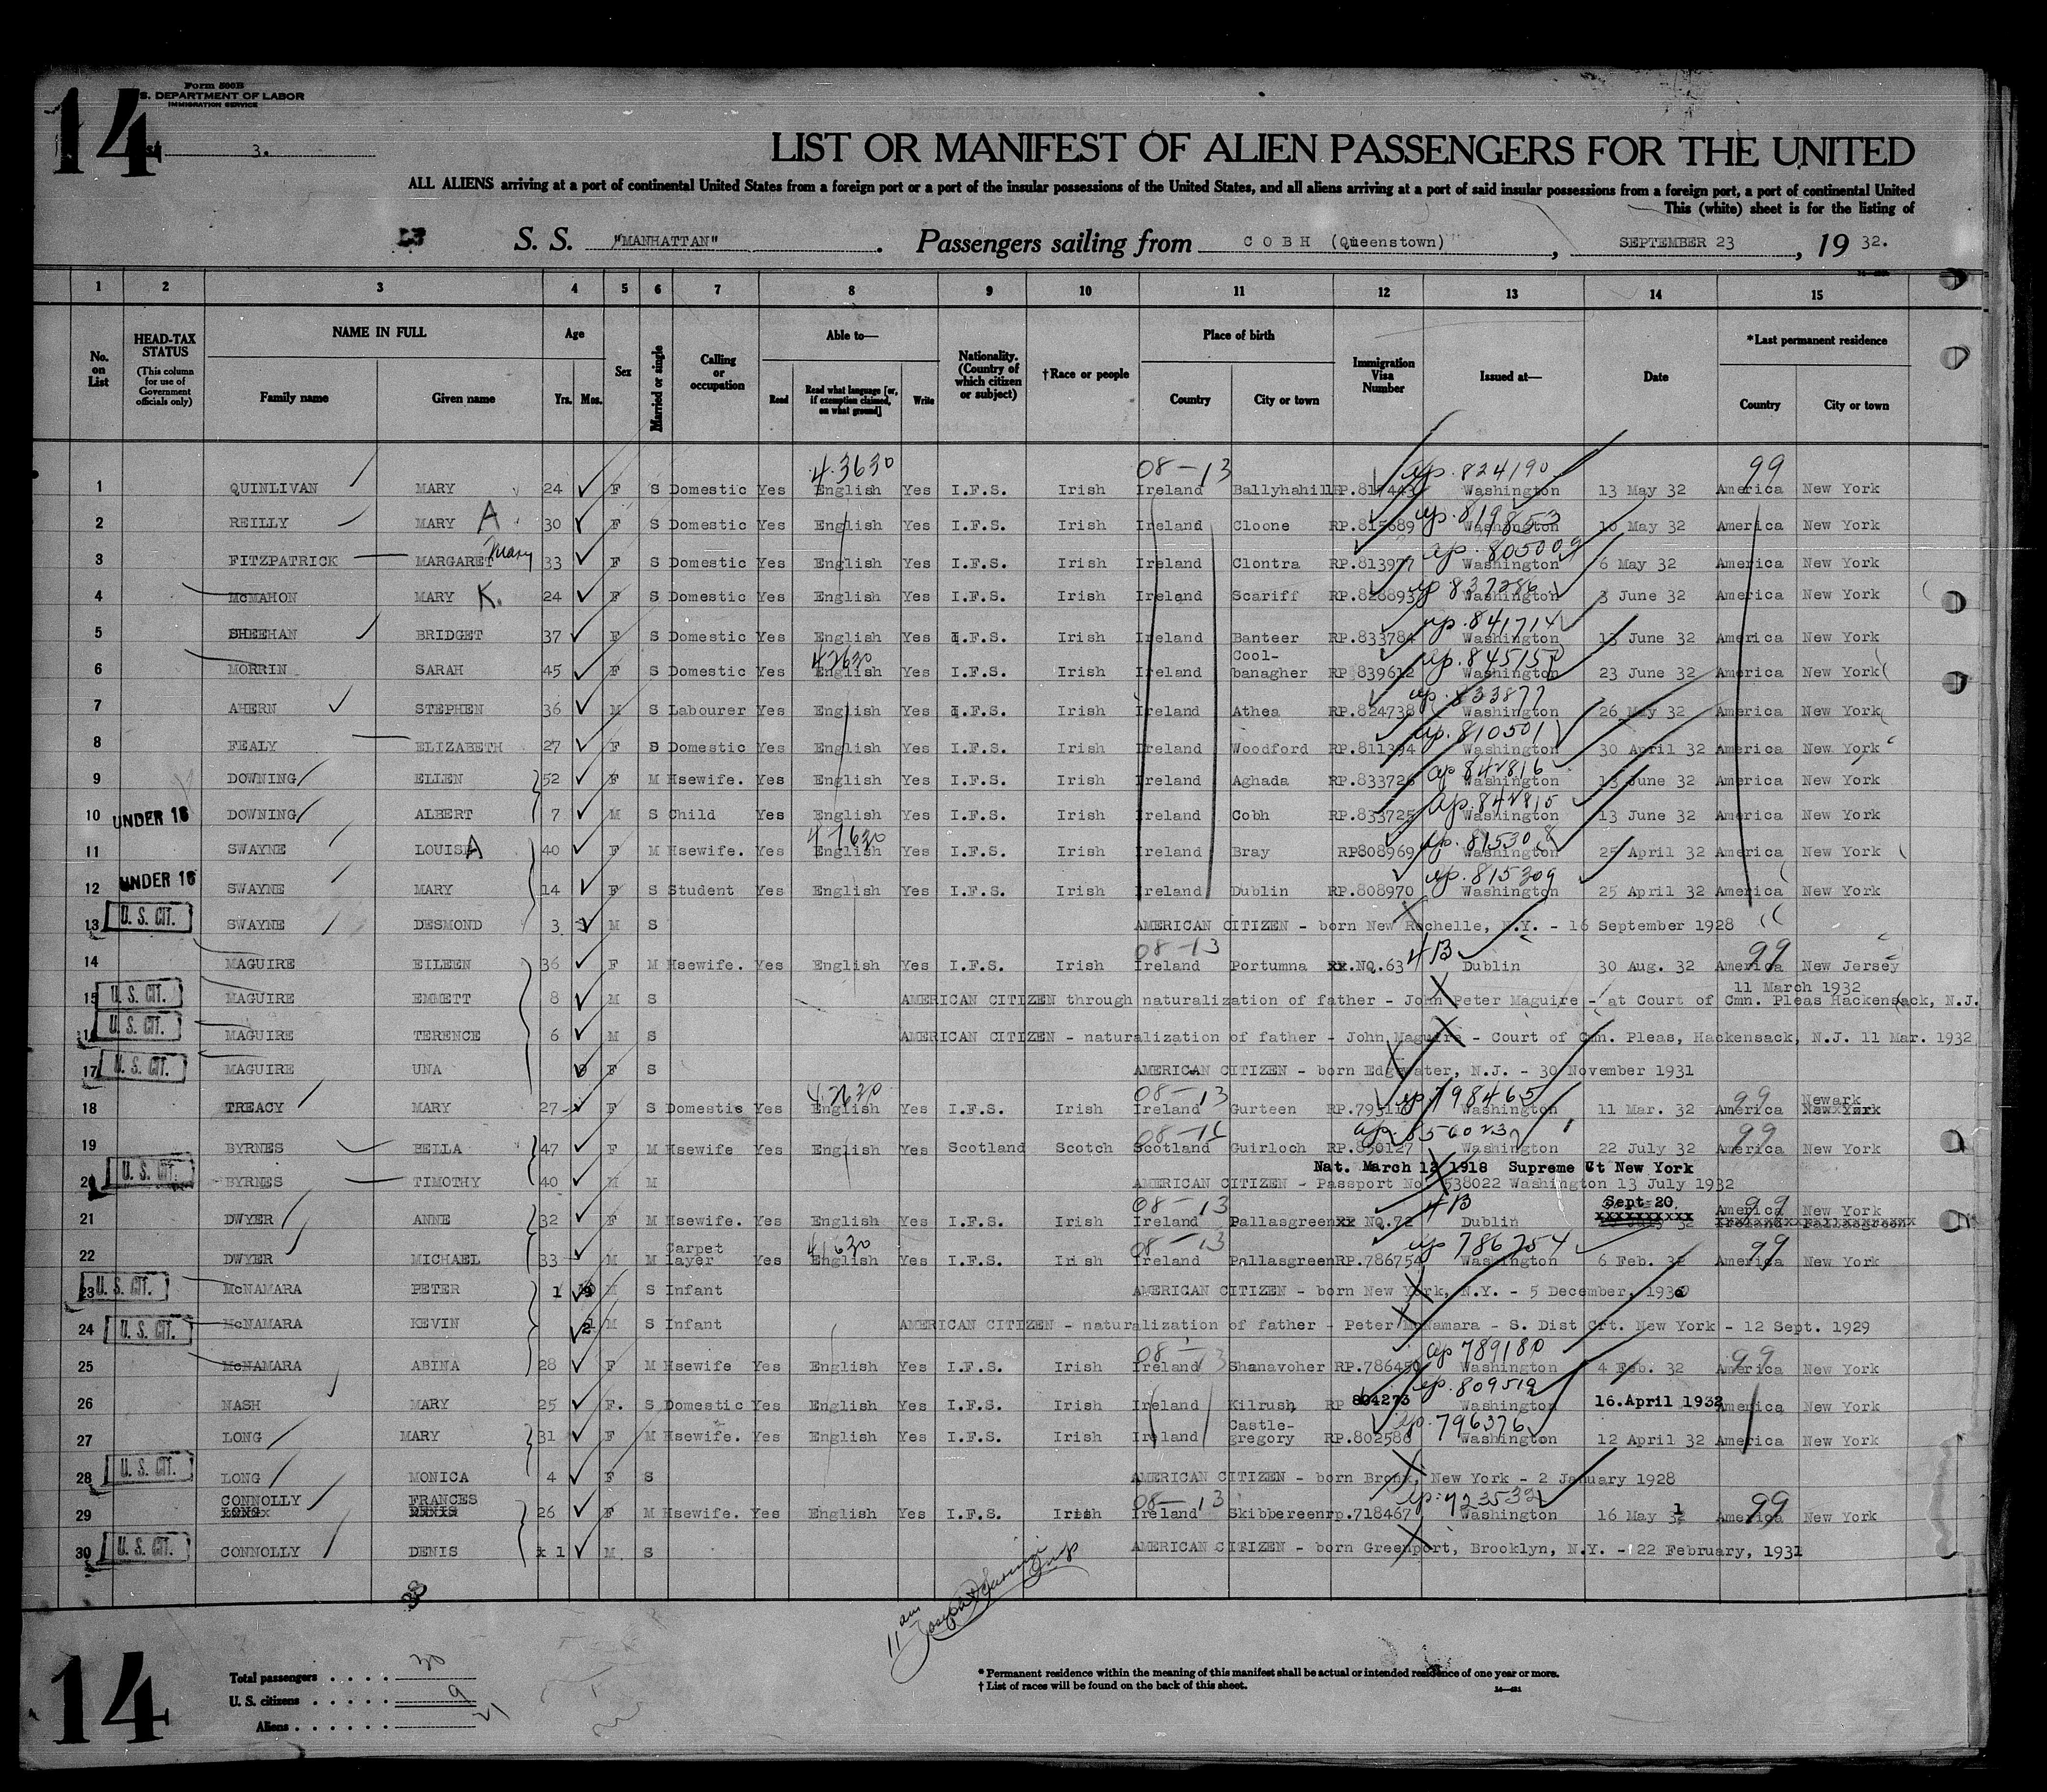 14
Form 500B
S. DEPARTMENT OF LABOR
IMMIGRATION SERVICE
3.
LIST OR MANIFEST OF ALIEN PASSENGERS FOR THE UNITED
ALL ALIENS arriving at a port of continental United States from a foreign port or a port of the insular possessions of the United States, and all aliens arriving at a port of said insular possessions from a foreign port, a port of continental United
This (white) sheet is for the listing of
S. S. "MANHATTAN". Passengers sailing from COBH (Queenstown), SEPTEMBER 23, 1932.
1 2 3 4 5 6 7 8 9 10 11 12 13 14 15
No. on List
HEAD-TAX STATUS (This column for use of Government officials only)
NAME IN FULL Family name Given name
Age Yrs. Mos.
Sex
Married or single
Calling or occupation
Able to— Read Read what language [or, if exemption claimed, on what ground] Write
Nationality. (Country of which citizen or subject)
†Race or people
Place of birth Country City or town
Immigration Visa Number
Issued at—
Date
*Last permanent residence Country City or town
4.3630 08-13 up. 824190 99
1 QUINLIVAN MARY 24 F S Domestic Yes English Yes I.F.S. Irish Ireland Ballyhahill Washington 13 May 32 America New York
up. 819853
2 REILLY MARY A 30 F S Domestic Yes English Yes I.F.S. Irish Ireland Cloone RP.815689 Washington 10 May 32 America New York
up. 805009
3 FITZPATRICK MARGARET Mary 33 F S Domestic Yes English Yes I.F.S. Irish Ireland Clontra RP.813977 Washington 6 May 32 America New York
up 837286
4 McMAHON MARY K. 24 F S Domestic Yes English Yes I.F.S. Irish Ireland Scariff RP.828893 Washington 3 June 32 America New York
up. 841714
5 SHEEHAN BRIDGET 37 F S Domestic Yes English Yes I.F.S. Irish Ireland Banteer RP.833784 Washington 13 June 32 America New York
up. 845152
6 MORRIN SARAH 45 F S Domestic Yes English Yes I.F.S. Irish Ireland Cool-banagher RP 839612 Washington 23 June 32 America New York
up. 833877
7 AHERN STEPHEN 36 M S Labourer Yes English Yes I.F.S. Irish Ireland Athea RP.824738 Washington 26 May 32 America New York
up. 810501
8 FEALY ELIZABETH 27 F S Domestic Yes English Yes I.F.S. Irish Ireland Woodford RP.811394 Washington 30 April 32 America New York
up 842816
9 DOWNING ELLEN 52 F M Hsewife. Yes English Yes I.F.S. Irish Ireland Aghada RP.833726 Washington 13 June 32 America New York
up. 842815
10 UNDER 16 DOWNING ALBERT 7 M S Child Yes English Yes I.F.S. Irish Ireland Cobh RP.833725 Washington 13 June 32 America New York
up. 815308
11 SWAYNE LOUISA 40 F M Hsewife. Yes English Yes I.F.S. Irish Ireland Bray RP808969 Washington 25 April 32 America New York
up. 815309
12 UNDER 16 SWAYNE MARY 14 F S Student Yes English Yes I.F.S. Irish Ireland Dublin RP.808970 Washington 25 April 32 America New York
13 U. S. CIT. SWAYNE DESMOND 3 M S AMERICAN CITIZEN - born New Rochelle, N.Y. - 16 September 1928
08-13 4B 99
14 MAGUIRE EILEEN 36 F M Hsewife. Yes English Yes I.F.S. Irish Ireland Portumna NQ.63 Dublin 30 Aug. 32 America New Jersey
11 March 1932
15 U. S. CIT. MAGUIRE EMMETT 8 M S AMERICAN CITIZEN through naturalization of father - John Peter Maguire - at Court of Cmn. Pleas Hackensack, N.J.
16 U. S. CIT. MAGUIRE TERENCE 6 M S AMERICAN CITIZEN - naturalization of father - John Maguire - Court of Cmn. Pleas, Hackensack, N.J. 11 Mar. 1932
17 U. S. CIT. MAGUIRE UNA 9 F S AMERICAN CITIZEN - born Edgewater, N.J. - 30 November 1931
08-13 up. 798465 99 Newark
18 TREACY MARY 27 F S Domestic Yes English Yes I.F.S. Irish Ireland Gurteen Washington 11 Mar. 32 America New York
up. 856023 99
19 BYRNES BELLA 47 F M Hsewife Yes English Yes Scotland Scotch Scotland Guirloch RP.850127 Washington 22 July 32 America New York
Nat. March 12 1918 Supreme Ct New York
20 U. S. CIT. BYRNES TIMOTHY 40 M M AMERICAN CITIZEN - Passport No. 538022 Washington 13 July 1932
08-13 4B Sept 20. 99
21 DWYER ANNE 32 F M Hsewife. Yes English Yes I.F.S. Irish Ireland Pallasgreen NQ.72 Dublin America New York
08-13 up 786754 99
22 DWYER MICHAEL 33 M M Carpet layer Yes English Yes I.F.S. Irish Ireland Pallasgreen RP.786754 Washington 6 Feb. 32 America New York
23 U. S. CIT. McNAMARA PETER 1 M S Infant AMERICAN CITIZEN - born New York, N.Y. - 5 December, 1930
24 U. S. CIT. McNAMARA KEVIN 2 M S Infant AMERICAN CITIZEN - naturalization of father - Peter McNamara - S. Dist Crt. New York - 12 Sept. 1929
08-13 up 789180 99
25 McNAMARA ABINA 28 F M Hsewife Yes English Yes I.F.S. Irish Ireland Shanavoher RP.786450 Washington 4 Feb. 32 America New York
up. 809519
26 NASH MARY 25 F. S Domestic Yes English Yes I.F.S. Irish Ireland Kilrush RP 804273 Washington 16.April 1932 America New York
up. 796376
27 LONG MARY 31 F M Hsewife. Yes English Yes I.F.S. Irish Ireland Castle-gregory RP.802586 Washington 12 April 32 America New York
28 U. S. CIT. LONG MONICA 4 F S AMERICAN CITIZEN - born Bronx, New York - 2 January 1928
08-13 up. 723532 99
29 CONNOLLY FRANCES 26 F M Hsewife. Yes English Yes I.F.S. Irish Ireland Skibbereen rp.718467 Washington 16 May 31 America New York
30 U. S. CIT. CONNOLLY DENIS 1 M S AMERICAN CITIZEN - born Greenport, Brooklyn, N.Y. - 22 February, 1931
11 am
14
Total passengers 30
U. S. citizens 9
Aliens 21
* Permanent residence within the meaning of this manifest shall be actual or intended residence of one year or more.
† List of races will be found on the back of this sheet.